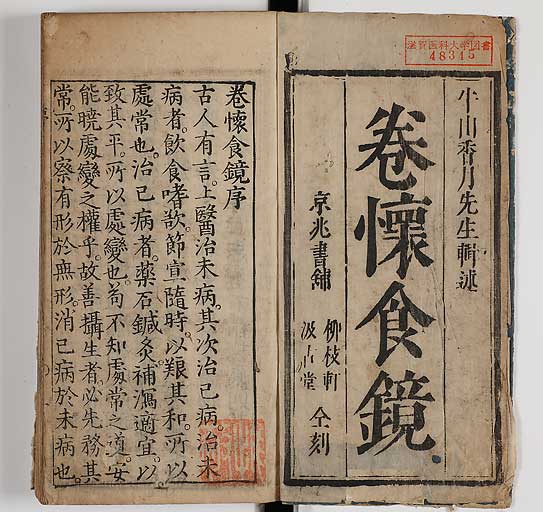 滋賀医科大学図書
48315
牛山香月先生輯述
卷懷食鏡
京兆書鋪
柳枝軒
汲古堂
仝刻
卷懷食鏡序
古人有言。上醫治未病。其次治已病。治未
病者。飲食嗜欲。節宣隨時。以艱其和。所以
處常也。治已病者。藥石鍼灸。補瀉適宜。以
致其平。所以處變也。苟不知處常之道。安
能曉處變之權乎。故善攝生者。必先務其
常。所以察有形於無形。消已病於未病也。